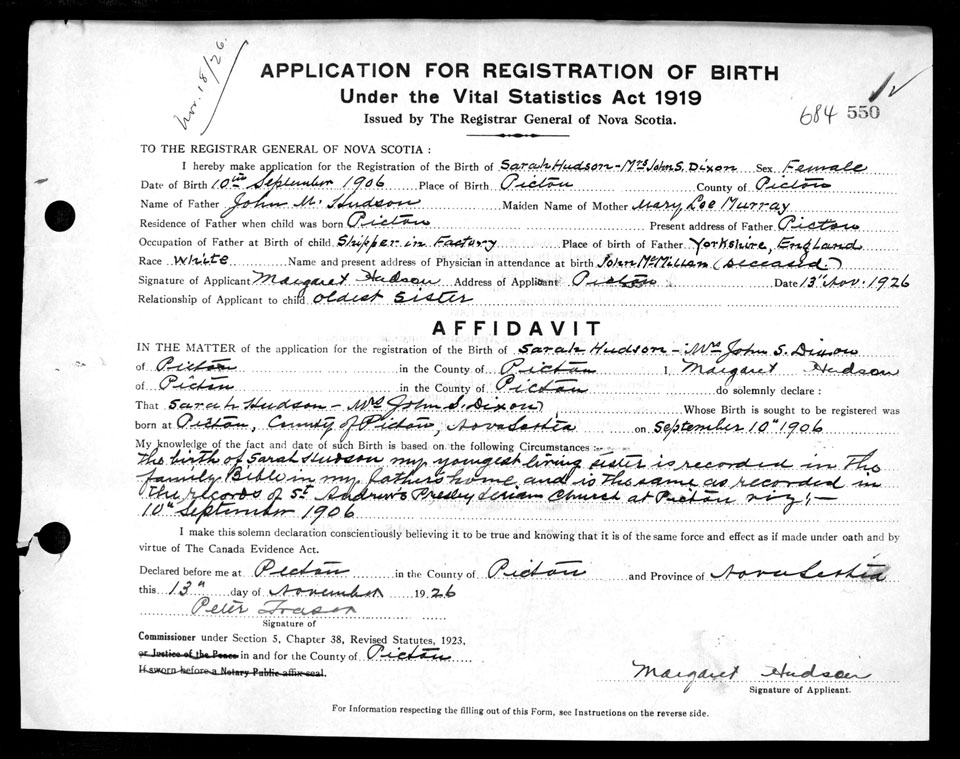 Nov. 18/26.
APPLICATION FOR REGISTRATION OF BIRTH
Under the Vital Statistics Act 1919
Issued by The Registrar General of Nova Scotia.
684 550
TO THE REGISTRAR GENERAL OF NOVA SCOTIA :
I hereby make application for the Registration of the Birth of Sarah Hudson - Mrs John S. Dixon Sex Female
Date of Birth 10th September 1906 Place of Birth Pictou County of Pictou
Name of Father John M. Hudson Maiden Name of Mother Mary Loe Murray
Residence of Father when child was born Pictou Present address of Father Pictou
Occupation of Father at Birth of child Shipper in Factory Place of birth of Father Yorkshire, England
Race White Name and present address of Physician in attendance at birth John McMillan (Deceased)
Signature of Applicant Margaret Hudson Address of Applicant Pictou Date 13th Nov. 1926
Relationship of Applicant to child oldest sister
AFFIDAVIT
IN THE MATTER of the application for the registration of the Birth of Sarah Hudson - Mrs John S. Dixon
of Pictou in the County of Pictou I, Margaret Hudson
of Pictou in the County of Pictou do solemnly declare :
That Sarah Hudson - Mrs John S. Dixon, Whose Birth is sought to be registered was
born at Pictou, County of Pictou, Nova Scotia on September 10th 1906
My knowledge of the fact and date of such Birth is based on the following Circumstances :-
The birth of Sarah Hudson my youngest living sister is recorded in the
family Bible in my fathers home and is the same as recorded in
the records of St Andrew's Presbyterian Church at Pictou viz :-
10th September 1906
I make this solemn declaration conscientiously believing it to be true and knowing that it is of the same force and effect as if made under oath and by
virtue of The Canada Evidence Act.
Declared before me at Pictou in the County of Pictou and Province of Nova Scotia
this 13th day of November 1926
Peter Fraser
Signature of
Commissioner under Section 5, Chapter 38, Revised Statutes, 1923,
or Justice of the Peace in and for the County of Pictou
If sworn before a Notary Public affix seal.
Margaret Hudson
Signature of Applicant.
For Information respecting the filling out of this Form, see Instructions on the reverse side.